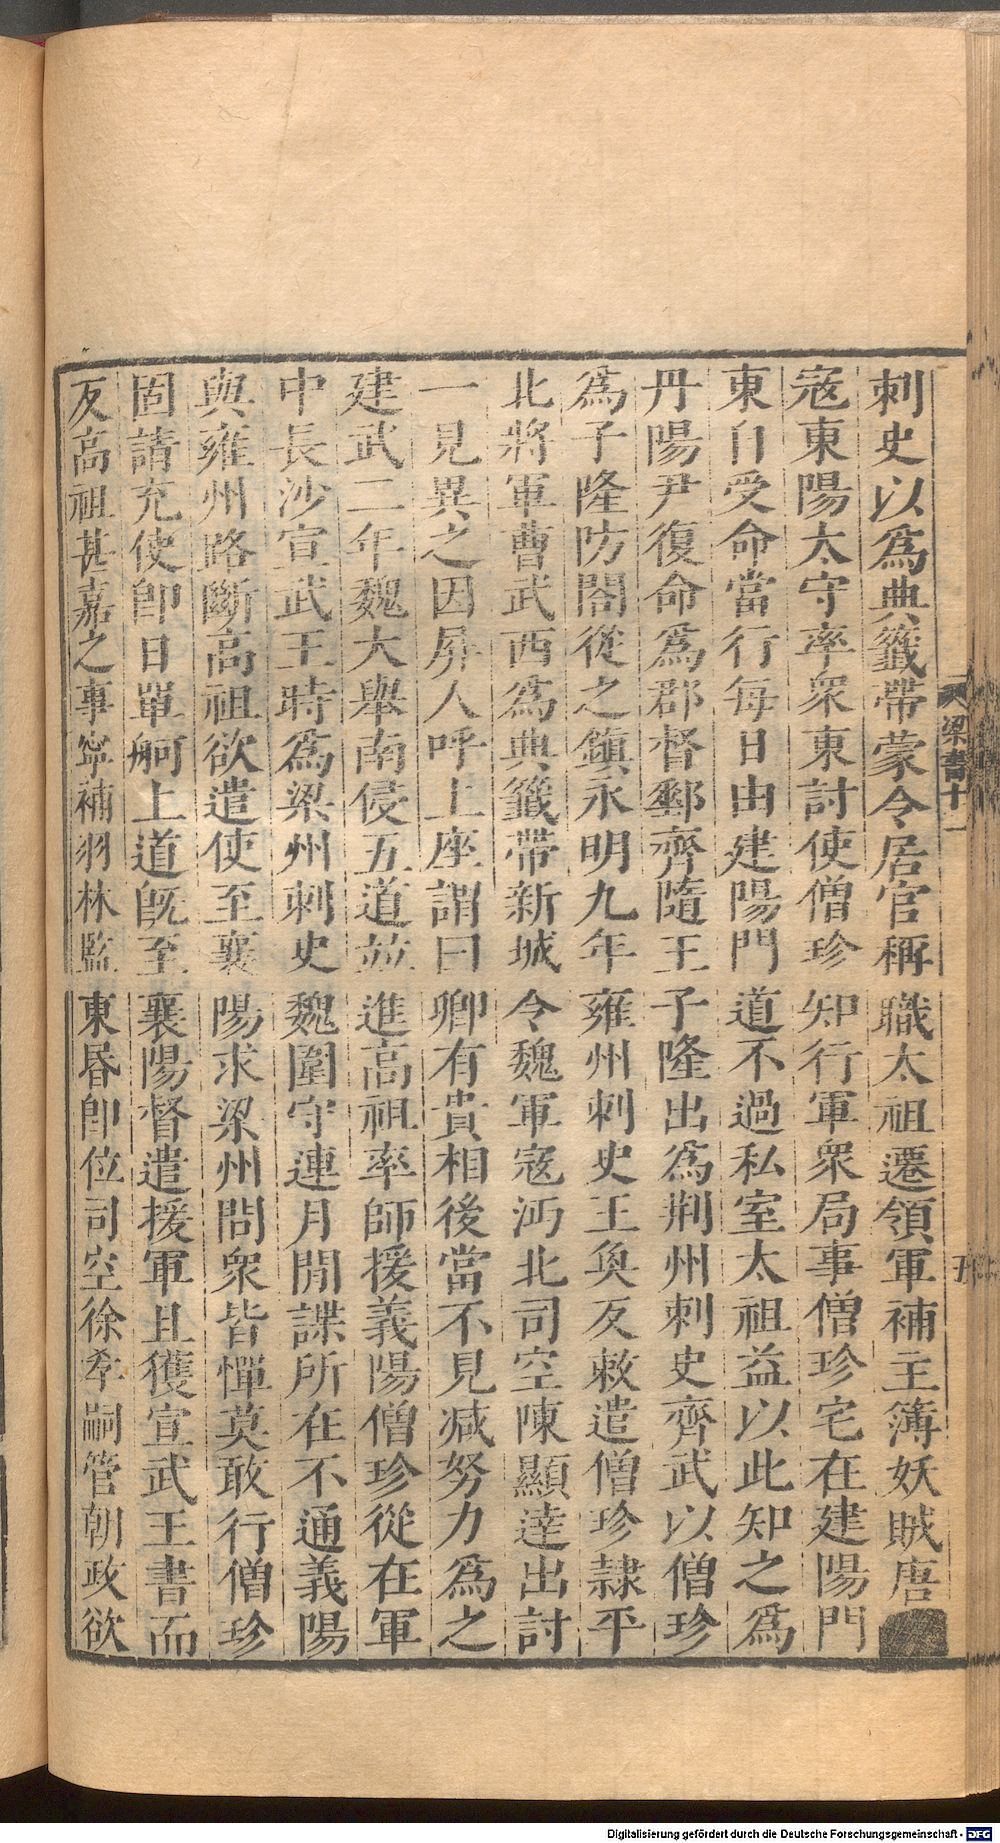 刺史以爲典籤帶蒙令居官稱職太祖遷領軍補主簿妖賊唐
寇東陽太守率衆東討使僧珍知行軍衆局事僧珍宅在建陽門
東自受命當行每日由建陽門道不過私室太祖益以此知之爲
丹陽尹復命爲郡督郵齊隨王子隆出爲荆州刺史齊武以僧珍
爲子隆防閤從之鎭永明九年雍州刺史王奐反敕遣僧珍隷平
北將軍曹武西爲典籤帶新城令魏軍寇沔北司空陳顯達出討
一見異之因屏人呼上座謂曰卿有貴相後當不見减努力爲之
建武二年魏大舉南侵五道並進高祖率師援義陽僧珍從在軍
中長沙宣武王時爲梁州刺史魏圍守連月間諜所在不通義陽
與雍州路斷高祖欲遣使至襄陽求梁州問衆皆憚莫敢行僧珍
固請充使卽日單舸上道旣至襄陽督遣援軍且獲宣武王書而
反高祖甚嘉之事寧補羽林監東昏卽位司空徐孝嗣管朝政欲
梁書十一
五
Digitalisierung gefördert durch die Deutsche Forschungsgemeinschaft - DFG